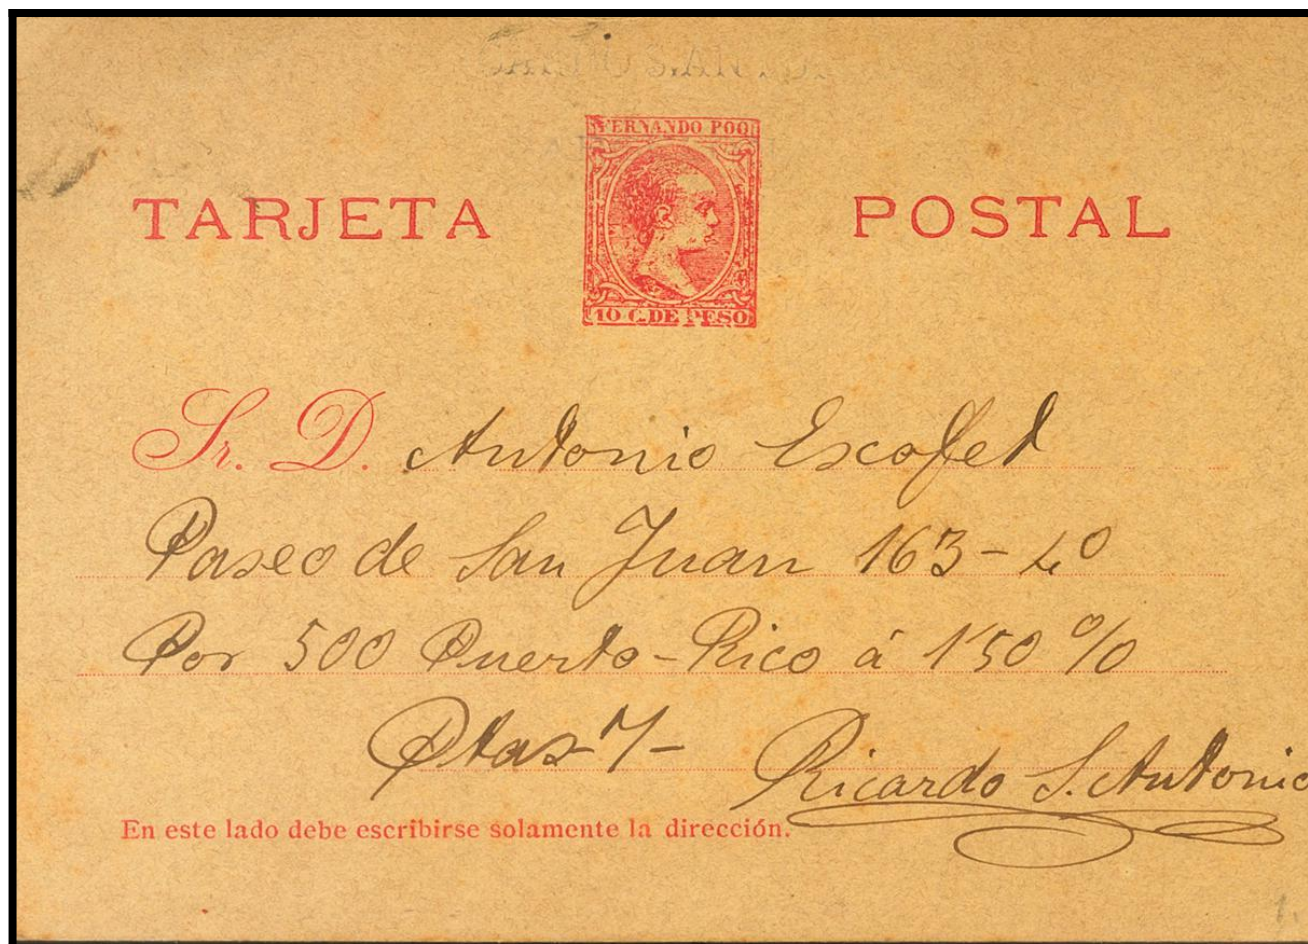 FERNANDO POO
TARJETA POSTAL
10 C. DE PESO
Sr. D. Antonio Escofet
Paseo de San Juan 163 - 4º
Por 500 Puerto-Rico á 1'50 %
Ptas 7-
Ricardo S. Antonio
En este lado debe escribirse solamente la dirección.
1.